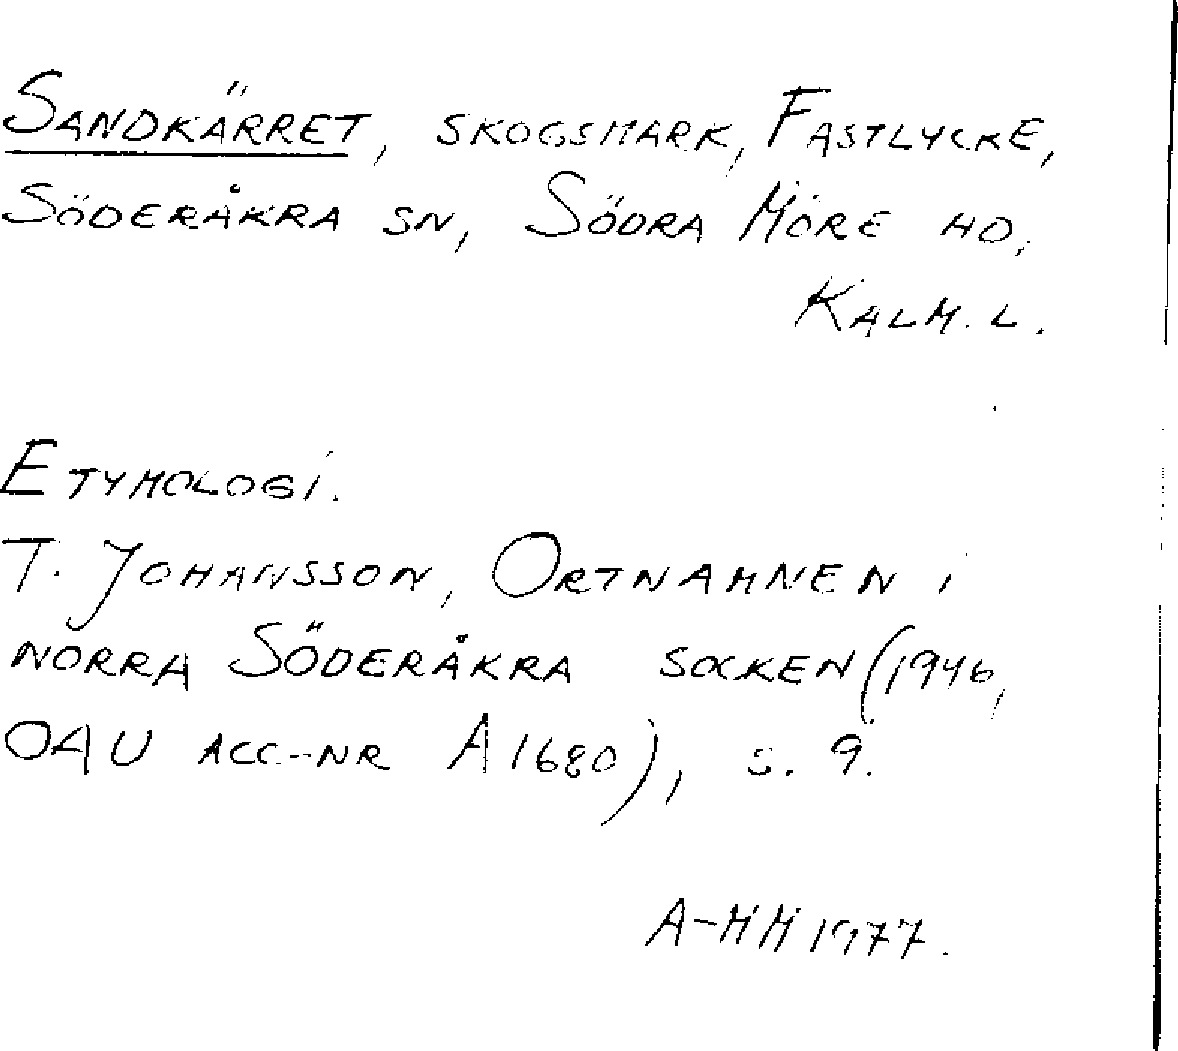 Sandkärret, skogsmark, Fastlycke,
Söderåkra sn, Södra Möre hd,
Kalm. l.
Etymologi.
T. Johansson, Ortnamnen i
norra Söderåkra socken (1946,
OAU acc-nr A1680), s. 9.
A-MM 1977.